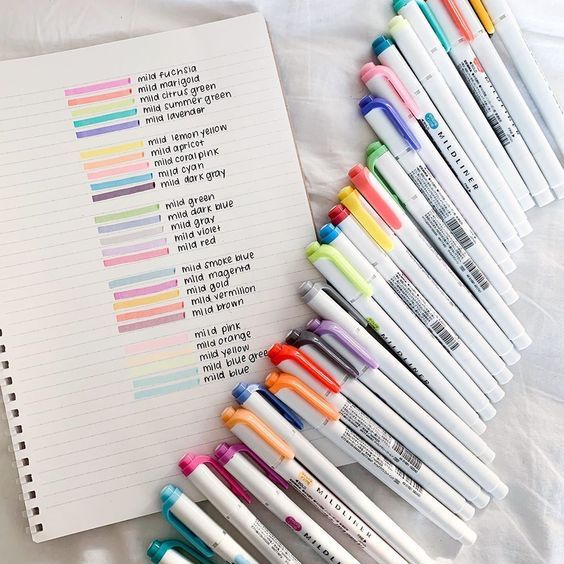 mild fuchsia
mild marigold
mild citrus green
mild summer green
mild lavender
mild lemon yellow
mild apricot
mild coral pink
mild cyan
mild dark gray
mild green
mild dark blue
mild gray
mild violet
mild red
mild smoke blue
mild magenta
mild gold
mild vermilion
mild brown
mild pink
mild orange
mild yellow
mild blue green
mild blue
MILDLINER
MILDLINER
MILDLINER
MILDLINER